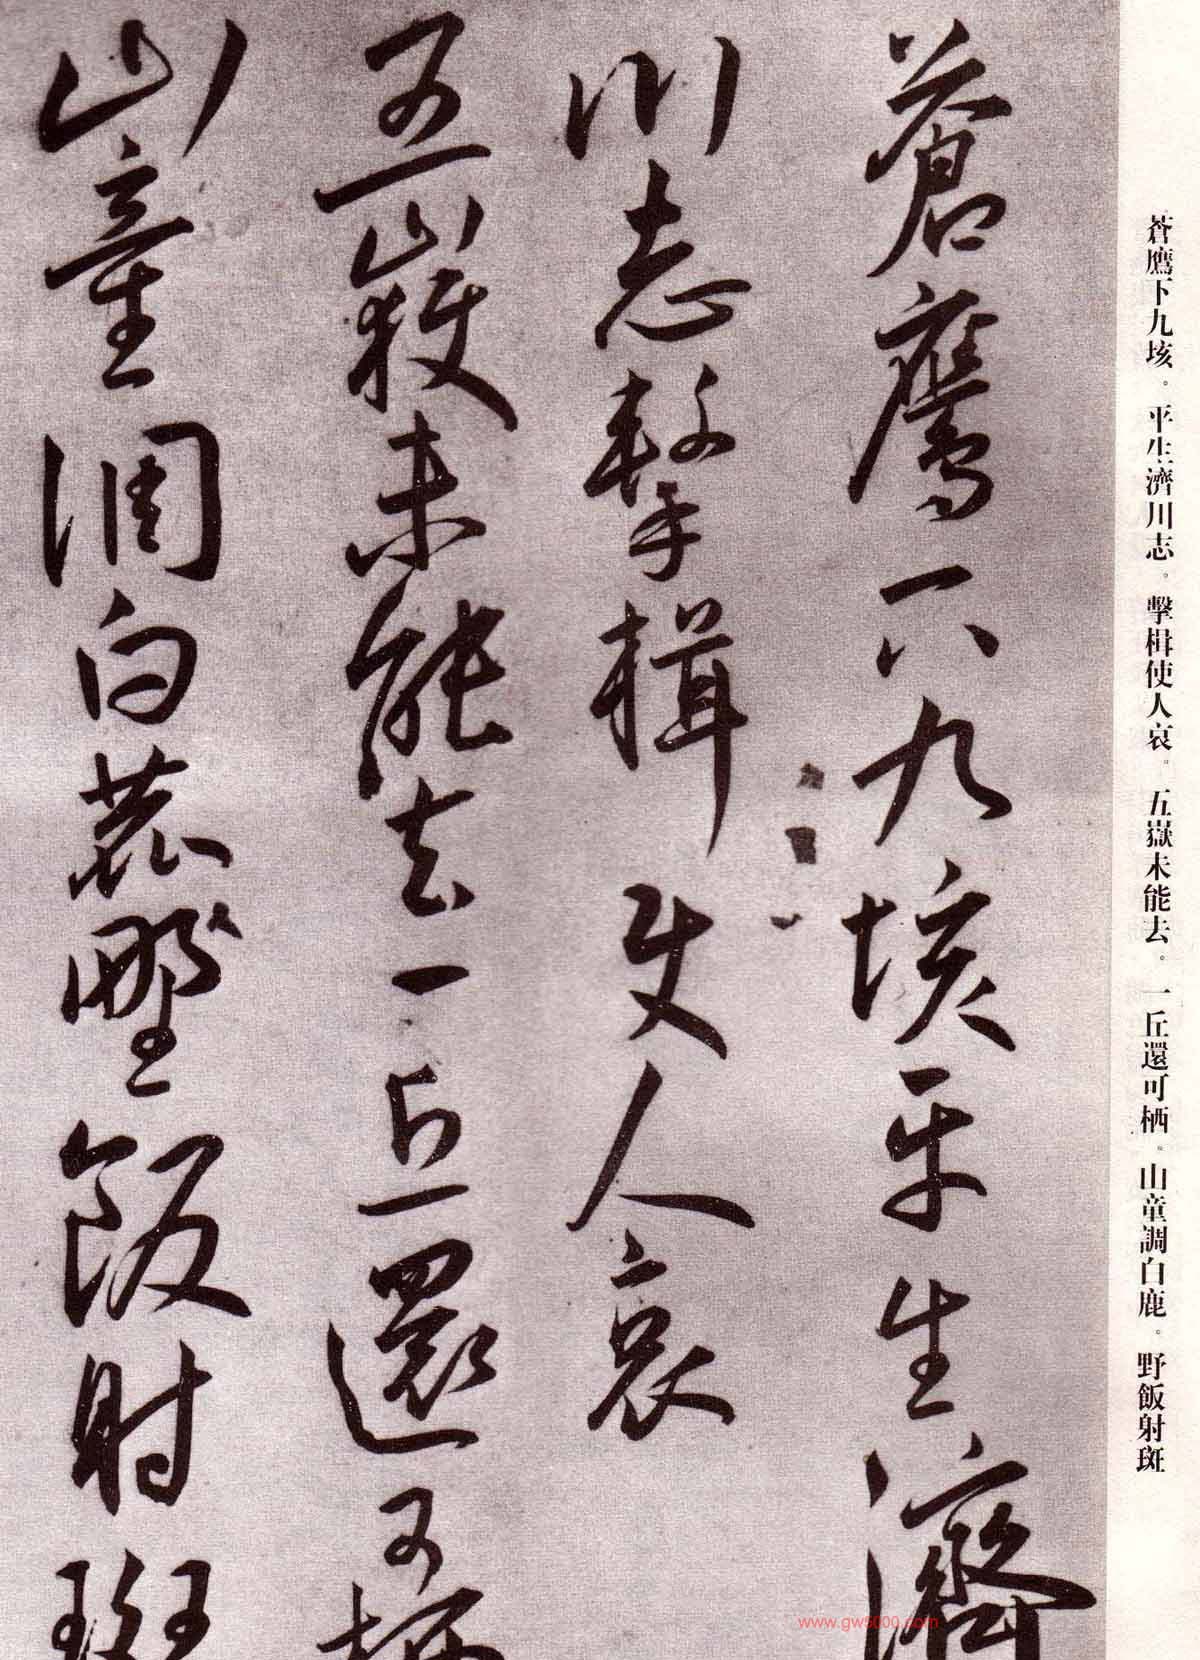 蒼鷹下九垓平生濟
川志擊楫使人哀
五嶽未能去一丘還可栖
山童調白鹿野飯射斑
蒼鷹下九垓。平生濟川志。擊楫使人哀。五嶽未能去。一丘還可栖。山童調白鹿。野飯射斑
www.gw5000.com